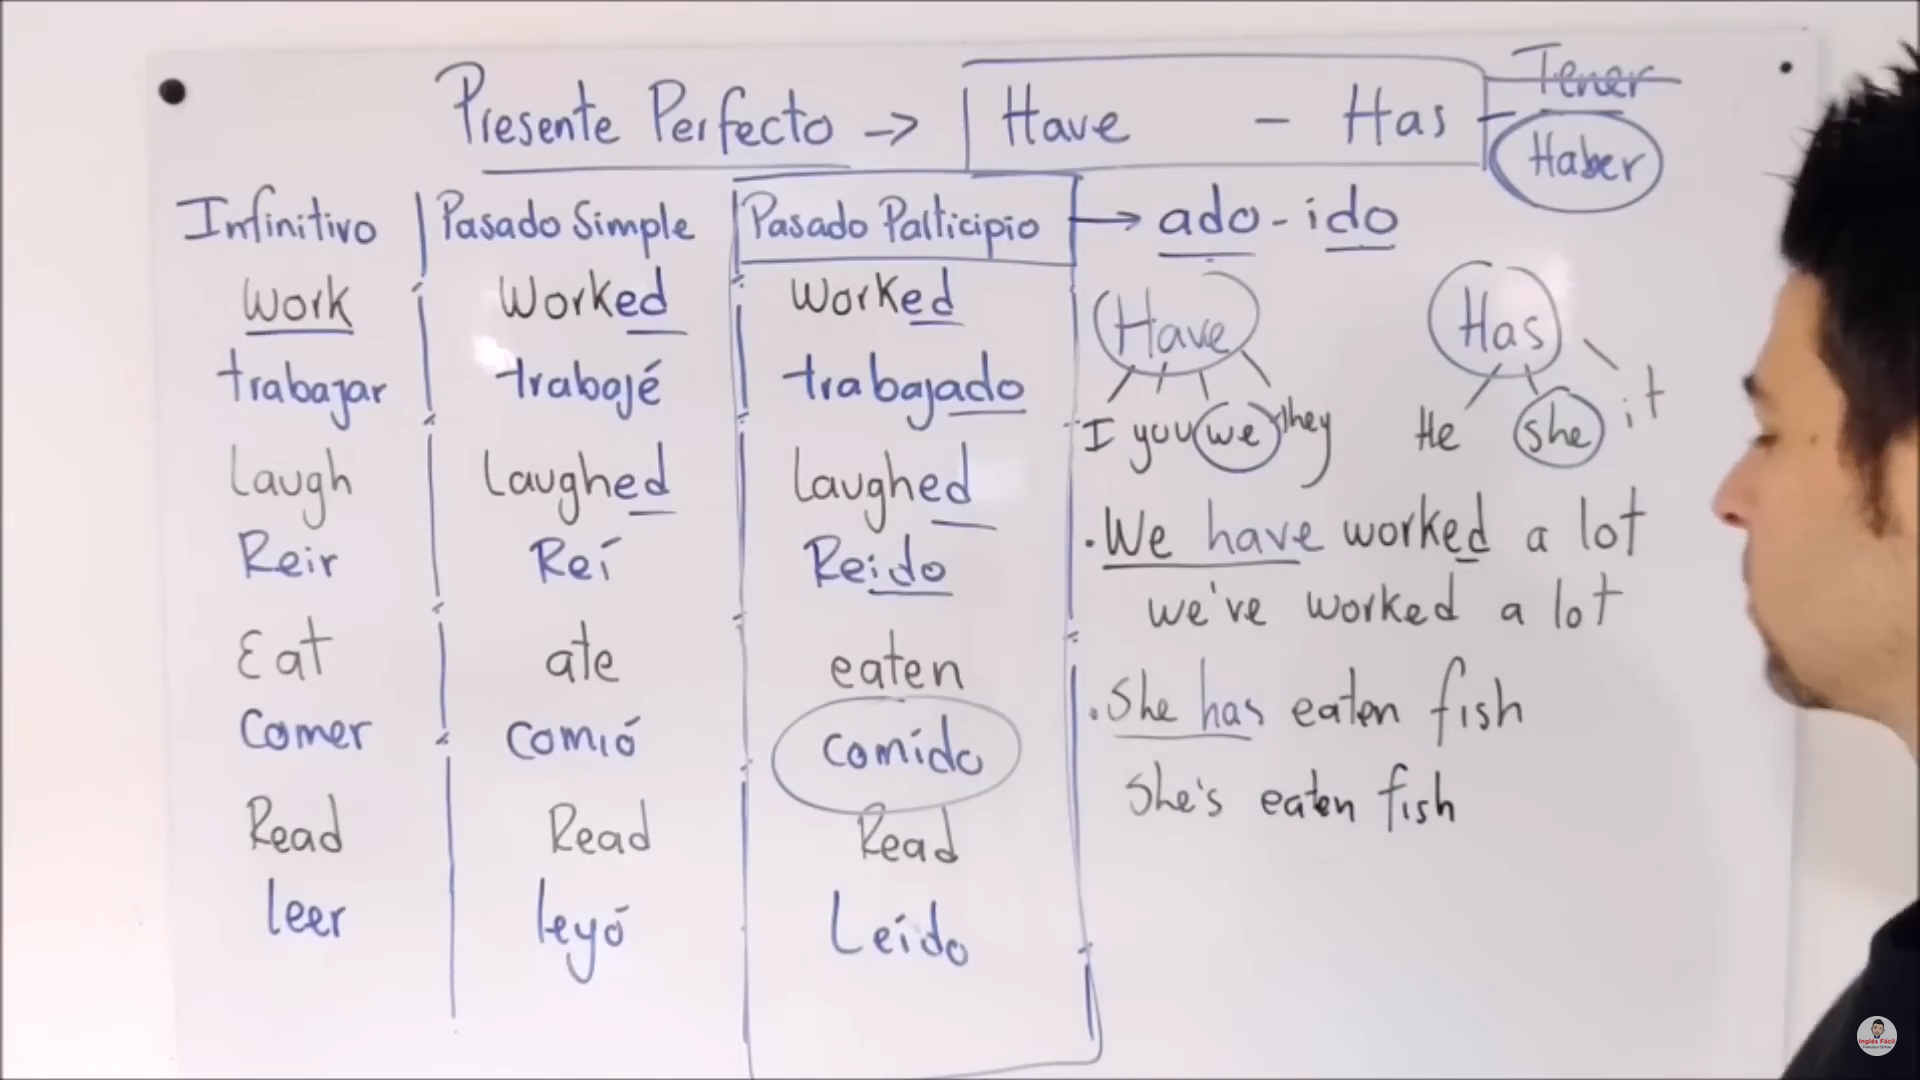 Presente Perfecto → Have - Has
Tener
Haber
Infinitivo Pasado Simple Pasado Participio → ado - ido
Work Worked Worked
trabajar trabajé trabajado
Laugh Laughed Laughed
Reir Reí Reido
Eat ate eaten
Comer comió comido
Read Read Read
leer leyó Leído
Have Has
I you we they He she it
. We have worked a lot
we've worked a lot
. She has eaten fish
She's eaten fish
Inglés Fácil